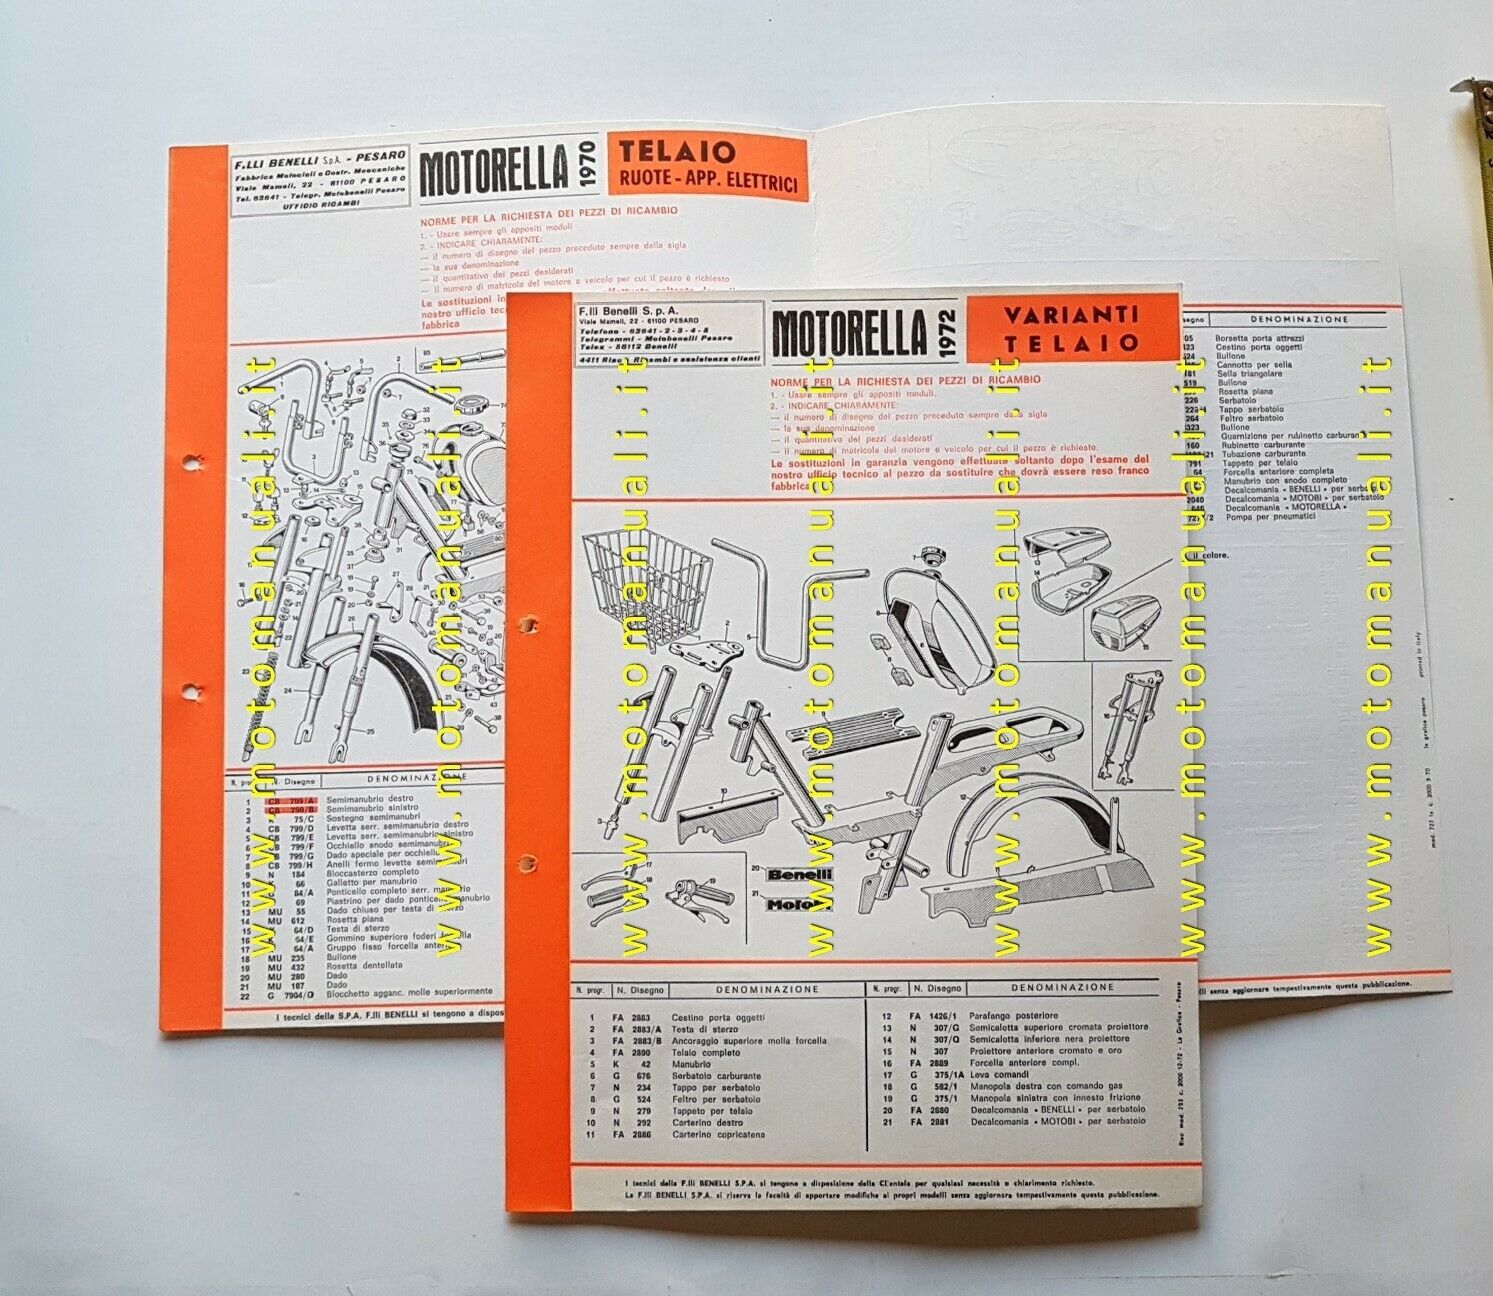 F.LLI BENELLI S.p.A. - PESARO
Fabbrica Motocicli e Costr. Meccaniche
Viale Mameli, 22 - 61100 PESARO
Tel. 63641 - Telegr. Motobenelli Pesaro
UFFICIO RICAMBI
MOTORELLA 1970
TELAIO
RUOTE - APP. ELETTRICI
NORME PER LA RICHIESTA DEI PEZZI DI RICAMBIO
1. - Usare sempre gli appositi moduli
2. - INDICARE CHIARAMENTE:
— il numero di disegno del pezzo preceduto sempre dalla sigla
— la sua denominazione
— il quantitativo dei pezzi desiderati
— il numero di matricola del motore o veicolo per cui il pezzo è richiesto
Le sostituzioni in
nostro ufficio tecn
fabbrica
N. progr. N. Disegno DENOMINAZIONE
1 CB 799/A Semimanubrio destro
2 CB 799/B Semimanubrio sinistro
3 75/C Sostegno semimanubri
4 CB 799/D Levetta serr. semimanubrio destro
5 CB 799/E Levetta serr. semimanubrio sinistro
6 CB 799/F Occhiello snodo semimanubrio
7 CB 799/G Dado speciale per occhiello
8 CB 799/H Anelli fermo levette semimanubri
9 N 184 Bloccasterzo completo
10 K 66 Galletto per manubrio
11 84/A Ponticello completo serr. manubrio
12 69 Piastrino per dado ponticello manubrio
13 MU 55 Dado chiuso per testa di sterzo
14 MU 612 Rosetta piana
15 64/D Testa di sterzo
16 64/E Gommino superiore foderi forcella
17 64/A Gruppo fisso forcella anter
18 MU 235 Bullone
19 MU 432 Rosetta dentellata
20 MU 280 Dado
21 MU 187 Dado
22 G 7904/Q Blocchetto agganc. molle superiormente
I tecnici della S.P.A. F.lli BENELLI si tengono a dispos
segno DENOMINAZIONE
05 Borsetta porta attrezzi
323 Cestino porta oggetti
524 Bullone
Cannotto per sella
181 Sella triangolare
519 Bullone
Rosetta piana
226 Serbatoio
223/4 Tappo serbatoio
264 Feltro serbatoio
323 Bullone
Guarnizione per rubinetto carburante
160 Rubinetto carburante
/21 Tubazione carburante
791 Tappeto per telaio
64 Forcella anteriore completa
Manubrio con snodo completo
Decalcomania « BENELLI » per serbatoio
2040 Decalcomania « MOTOBI » per serbatoio
646 Decalcomania « MOTORELLA »
/2 Pompa per pneumatici
il colore.
mod. 727 1x c. 3000 9 70 la grafica pesaro printed in italy
lli senza aggiornare tempestivamente questa pubblicazione.
F.lli Benelli S.p.A.
Viale Mameli, 22 - 61100 PESARO
Telefono - 63641 - 2 - 3 - 4 - 5
Telegrammi - Motobenelli Pesaro
Telex - 56112 Benelli
4411 Rise - Ricambi e assistenza clienti
MOTORELLA 1972
VARIANTI
TELAIO
NORME PER LA RICHIESTA DEI PEZZI DI RICAMBIO
1. - Usare sempre gli appositi moduli.
2. - INDICARE CHIARAMENTE:
— il numero di disegno del pezzo preceduto sempre dalla sigla
— la sua denominazione
— il quantitativo dei pezzi desiderati
— il numero di matricola del motore o veicolo per cui il pezzo è richiesto.
Le sostituzioni in garanzia vengono effettuate soltanto dopo l'esame del
nostro ufficio tecnico al pezzo da sostituire che dovrà essere reso franco
fabbrica
Benelli
Motobi
N. progr. N. Disegno DENOMINAZIONE
1 FA 2883 Cestino porta oggetti
2 FA 2883/A Testa di sterzo
3 FA 2883/B Ancoraggio superiore molla forcella
4 FA 2890 Telaio completo
5 K 42 Manubrio
6 G 676 Serbatoio carburante
7 N 234 Tappo per serbatoio
8 G 524 Feltro per serbatoio
9 N 279 Tappeto per telaio
10 N 292 Carterino destro
11 FA 2886 Carterino copricatena
N. progr. N. Disegno DENOMINAZIONE
12 FA 1426/1 Parafango posteriore
13 N 307/G Semicalotta superiore cromata proiettore
14 N 307/Q Semicalotta inferiore nera proiettore
15 N 307 Proiettore anteriore cromato e oro
16 FA 2889 Forcella anteriore compl.
17 G 375/1A Leva comandi
18 G 582/1 Manopola destra con comando gas
19 G 375/1 Manopola sinistra con innesto frizione
20 FA 2880 Decalcomania « BENELLI » per serbatoio
21 FA 2881 Decalcomania « MOTOBI » per serbatoio
Risc mod. 293 c. 2000 12-72 - La Grafica - Pesaro
I tecnici della F.lli BENELLI S.P.A. si tengono a disposizione della Clientela per qualsiasi necessità o chiarimento richiesto.
La F.lli BENELLI S.P.A. si riserva la facoltà di apportare modifiche ai propri modelli senza aggiornare tempestivamente questa pubblicazione.
www.motomanuali.it
www.motomanuali.it
www.motomanuali.it
www.motomanuali.it
www.motomanuali.it
www.motomanuali.it
www.motomanuali.it